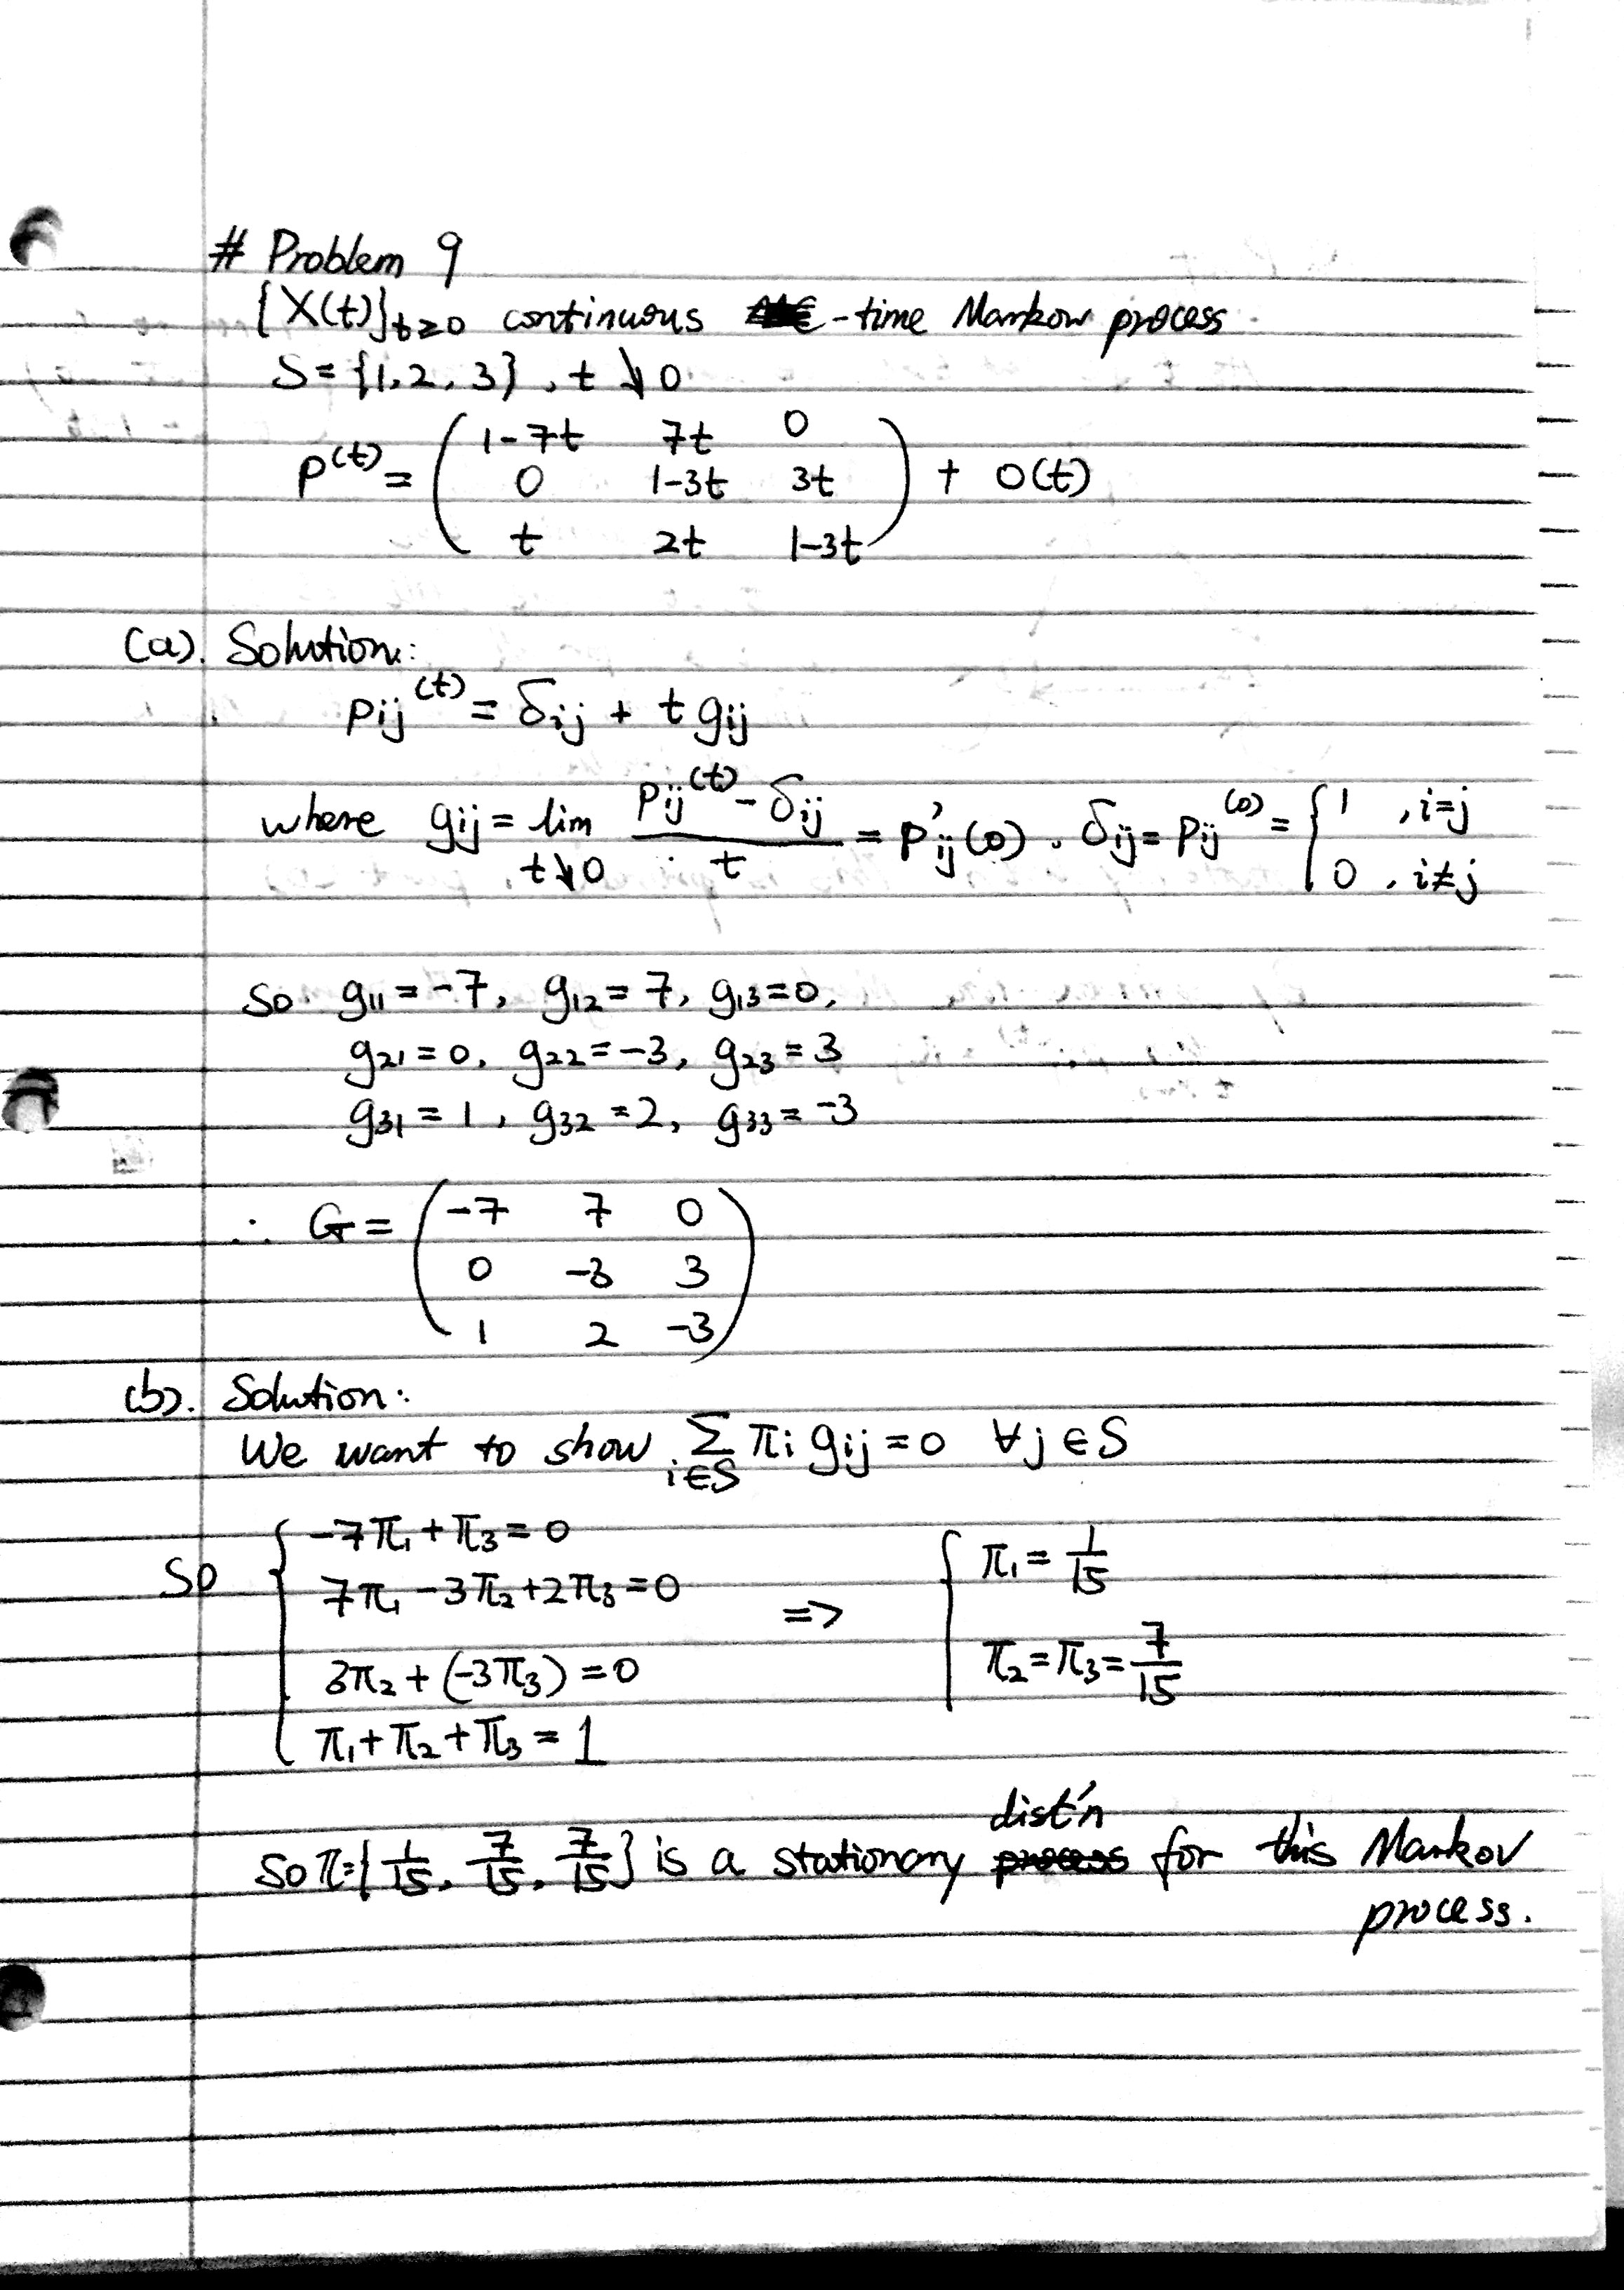 # Problem 9
{X(t)}t≥0 continuous -time Markov process.
S = {1, 2, 3}, t ↘ 0
P^(t) = ( 1-7t 7t 0
0 1-3t 3t
t 2t 1-3t ) + O(t)
(a). Solution:
Pij^(t) = δij + t gij
where gij = lim t↘0 (Pij^(t) - δij)/t = P'ij(0). δij = Pij^(0) = { 1 , i=j
0 , i≠j
So g11 = -7, g12 = 7, g13 = 0,
g21 = 0, g22 = -3, g23 = 3
g31 = 1, g32 = 2, g33 = -3
∴ G = ( -7 7 0
0 -3 3
1 2 -3 )
(b). Solution:
We want to show Σ i∈S πi gij = 0 ∀j ∈ S
So { -7π1 + π3 = 0
7π1 - 3π2 + 2π3 = 0
3π2 + (-3π3) = 0
π1 + π2 + π3 = 1
=> { π1 = 1/15
π2 = π3 = 7/15
So π = {1/15, 7/15, 7/15} is a stationary dist'n for this Markov
process.